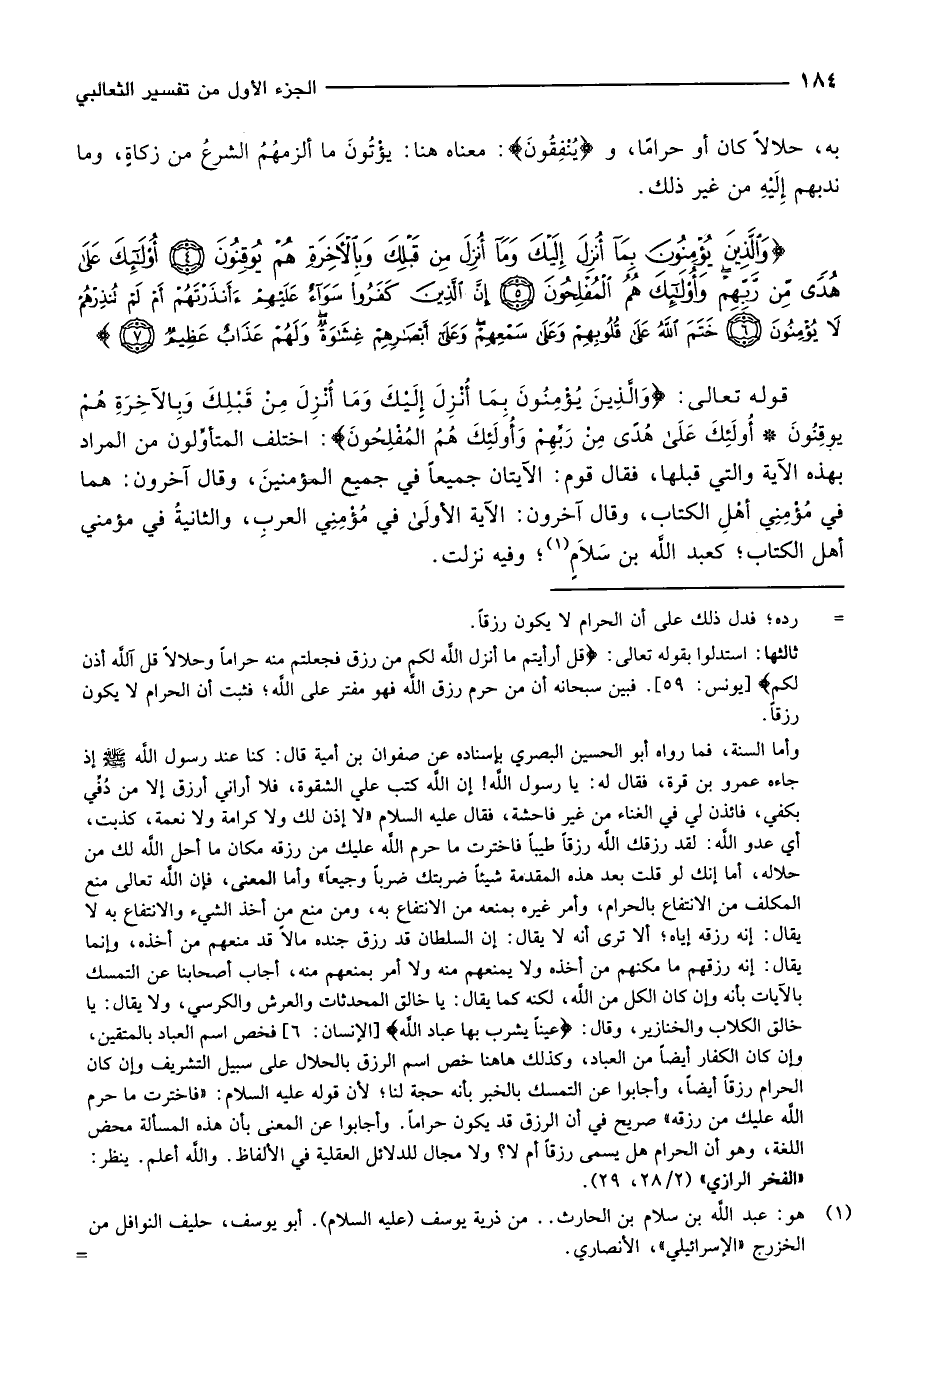 ١٨٤ الجزء الأول من تفسير الثعالبي
به، حلالاً كان أو حرامًا، و ﴿يُنْفِقُونَ﴾: معناه هنا: يؤْتُونَ ما ألزمهُمُ الشرعُ من زكاةٍ، وما
ندبهم إِلَيْهِ من غير ذلك.
﴿وَالَّذِينَ يُؤْمِنُونَ بِمَا أُنزِلَ إِلَيْكَ وَمَا أُنزِلَ مِن قَبْلِكَ وَبِالْآخِرَةِ هُمْ يُوقِنُونَ ﴿٤﴾ أُوْلَٰئِكَ عَلَىٰ
هُدًى مِّن رَّبِّهِمْ ۖ وَأُوْلَٰئِكَ هُمُ الْمُفْلِحُونَ ﴿٥﴾ إِنَّ الَّذِينَ كَفَرُوا سَوَاءٌ عَلَيْهِمْ ءَأَنذَرْتَهُمْ أَمْ لَمْ تُنذِرْهُمْ
لَا يُؤْمِنُونَ ﴿٦﴾ خَتَمَ اللَّهُ عَلَىٰ قُلُوبِهِمْ وَعَلَىٰ سَمْعِهِمْ ۖ وَعَلَىٰ أَبْصَارِهِمْ غِشَاوَةٌ ۖ وَلَهُمْ عَذَابٌ عَظِيمٌ ﴿٧﴾ ﴾
قوله تعالى: ﴿وَالَّذِينَ يُؤْمِنُونَ بِمَا أُنْزِلَ إِلَيْكَ وَمَا أُنْزِلَ مِنْ قَبْلِكَ وَبِالآخِرَةِ هُمْ
يوقِنُونَ * أُولَئِكَ عَلَىٰ هُدًى مِنْ رَبِّهِمْ وَأُولَئِكَ هُمُ المُفْلِحُونَ﴾: اختلف المتأوِّلون من المراد
بهذه الآية والتي قبلها، فقال قوم: الآيتان جميعاً في جميع المؤمنينَ، وقال آخرون: هما
في مُؤْمِنِي أهْلِ الكتاب، وقال آخرون: الآية الأولَىٰ في مُؤْمِنِي العربِ، والثانيةُ في مؤمني
أهل الكتاب؛ كعبد اللَّه بن سَلاَمٍ(١)؛ وفيه نزلت.
= رده؛ فدل ذلك على أن الحرام لا يكون رزقاً.
ثالثها: استدلوا بقوله تعالى: ﴿قل أرأيتم ما أنزل اللَّه لكم من رزق فجعلتم منه حراماً وحلالاً قل آللَّه أذن
لكم﴾ [يونس: ٥٩]. فبين سبحانه أن من حرم رزق اللَّه فهو مفتر على اللَّه؛ فثبت أن الحرام لا يكون
رزقاً.
وأما السنة، فما رواه أبو الحسين البصري بإسناده عن صفوان بن أمية قال: كنا عند رسول اللَّه ﷺ إذ
جاءه عمرو بن قرة، فقال له: يا رسول اللَّه! إن اللَّه كتب علي الشقوة، فلا أراني أرزق إلا من دُفِّي
بكفي، فائذن لي في الغناء من غير فاحشة، فقال عليه السلام «لا إذن لك ولا كرامة ولا نعمة، كذبت،
أي عدو اللَّه: لقد رزقك اللَّه رزقاً طيباً فاخترت ما حرم اللَّه عليك من رزقه مكان ما أحل اللَّه لك من
حلاله، أما إنك لو قلت بعد هذه المقدمة شيئاً ضربتك ضرباً وجيعاً» وأما المعنى، فإن اللَّه تعالى منع
المكلف من الانتفاع بالحرام، وأمر غيره بمنعه من الانتفاع به، ومن منع من أخذ الشيء والانتفاع به لا
يقال: إنه رزقه إياه؛ ألا ترى أنه لا يقال: إن السلطان قد رزق جنده مالاً قد منعهم من أخذه، وإنما
يقال: إنه رزقهم ما مكنهم من أخذه ولا يمنعهم منه ولا أمر بمنعهم منه، أجاب أصحابنا عن التمسك
بالآيات بأنه وإن كان الكل من اللَّه، لكنه كما يقال: يا خالق المحدثات والعرش والكرسي، ولا يقال: يا
خالق الكلاب والخنازير، وقال: ﴿عيناً يشرب بها عباد اللَّه﴾ [الإنسان: ٦] فخص اسم العباد بالمتقين،
وإن كان الكفار أيضاً من العباد، وكذلك هاهنا خص اسم الرزق بالحلال على سبيل التشريف وإن كان
الحرام رزقاً أيضاً، وأجابوا عن التمسك بالخبر بأنه حجة لنا؛ لأن قوله عليه السلام: «فاخترت ما حرم
اللَّه عليك من رزقه» صريح في أن الرزق قد يكون حراماً. وأجابوا عن المعنى بأن هذه المسألة محض
اللغة، وهو أن الحرام هل يسمى رزقاً أم لا؟ ولا مجال للدلائل العقلية في الألفاظ. واللَّه أعلم. ينظر:
«الفخر الرازي» (٢٨/٢، ٢٩).
(١) هو: عبد اللَّه بن سلام بن الحارث.. من ذرية يوسف (عليه السلام). أبو يوسف، حليف النوافل من
الخزرج «الإسرائيلي»، الأنصاري. =